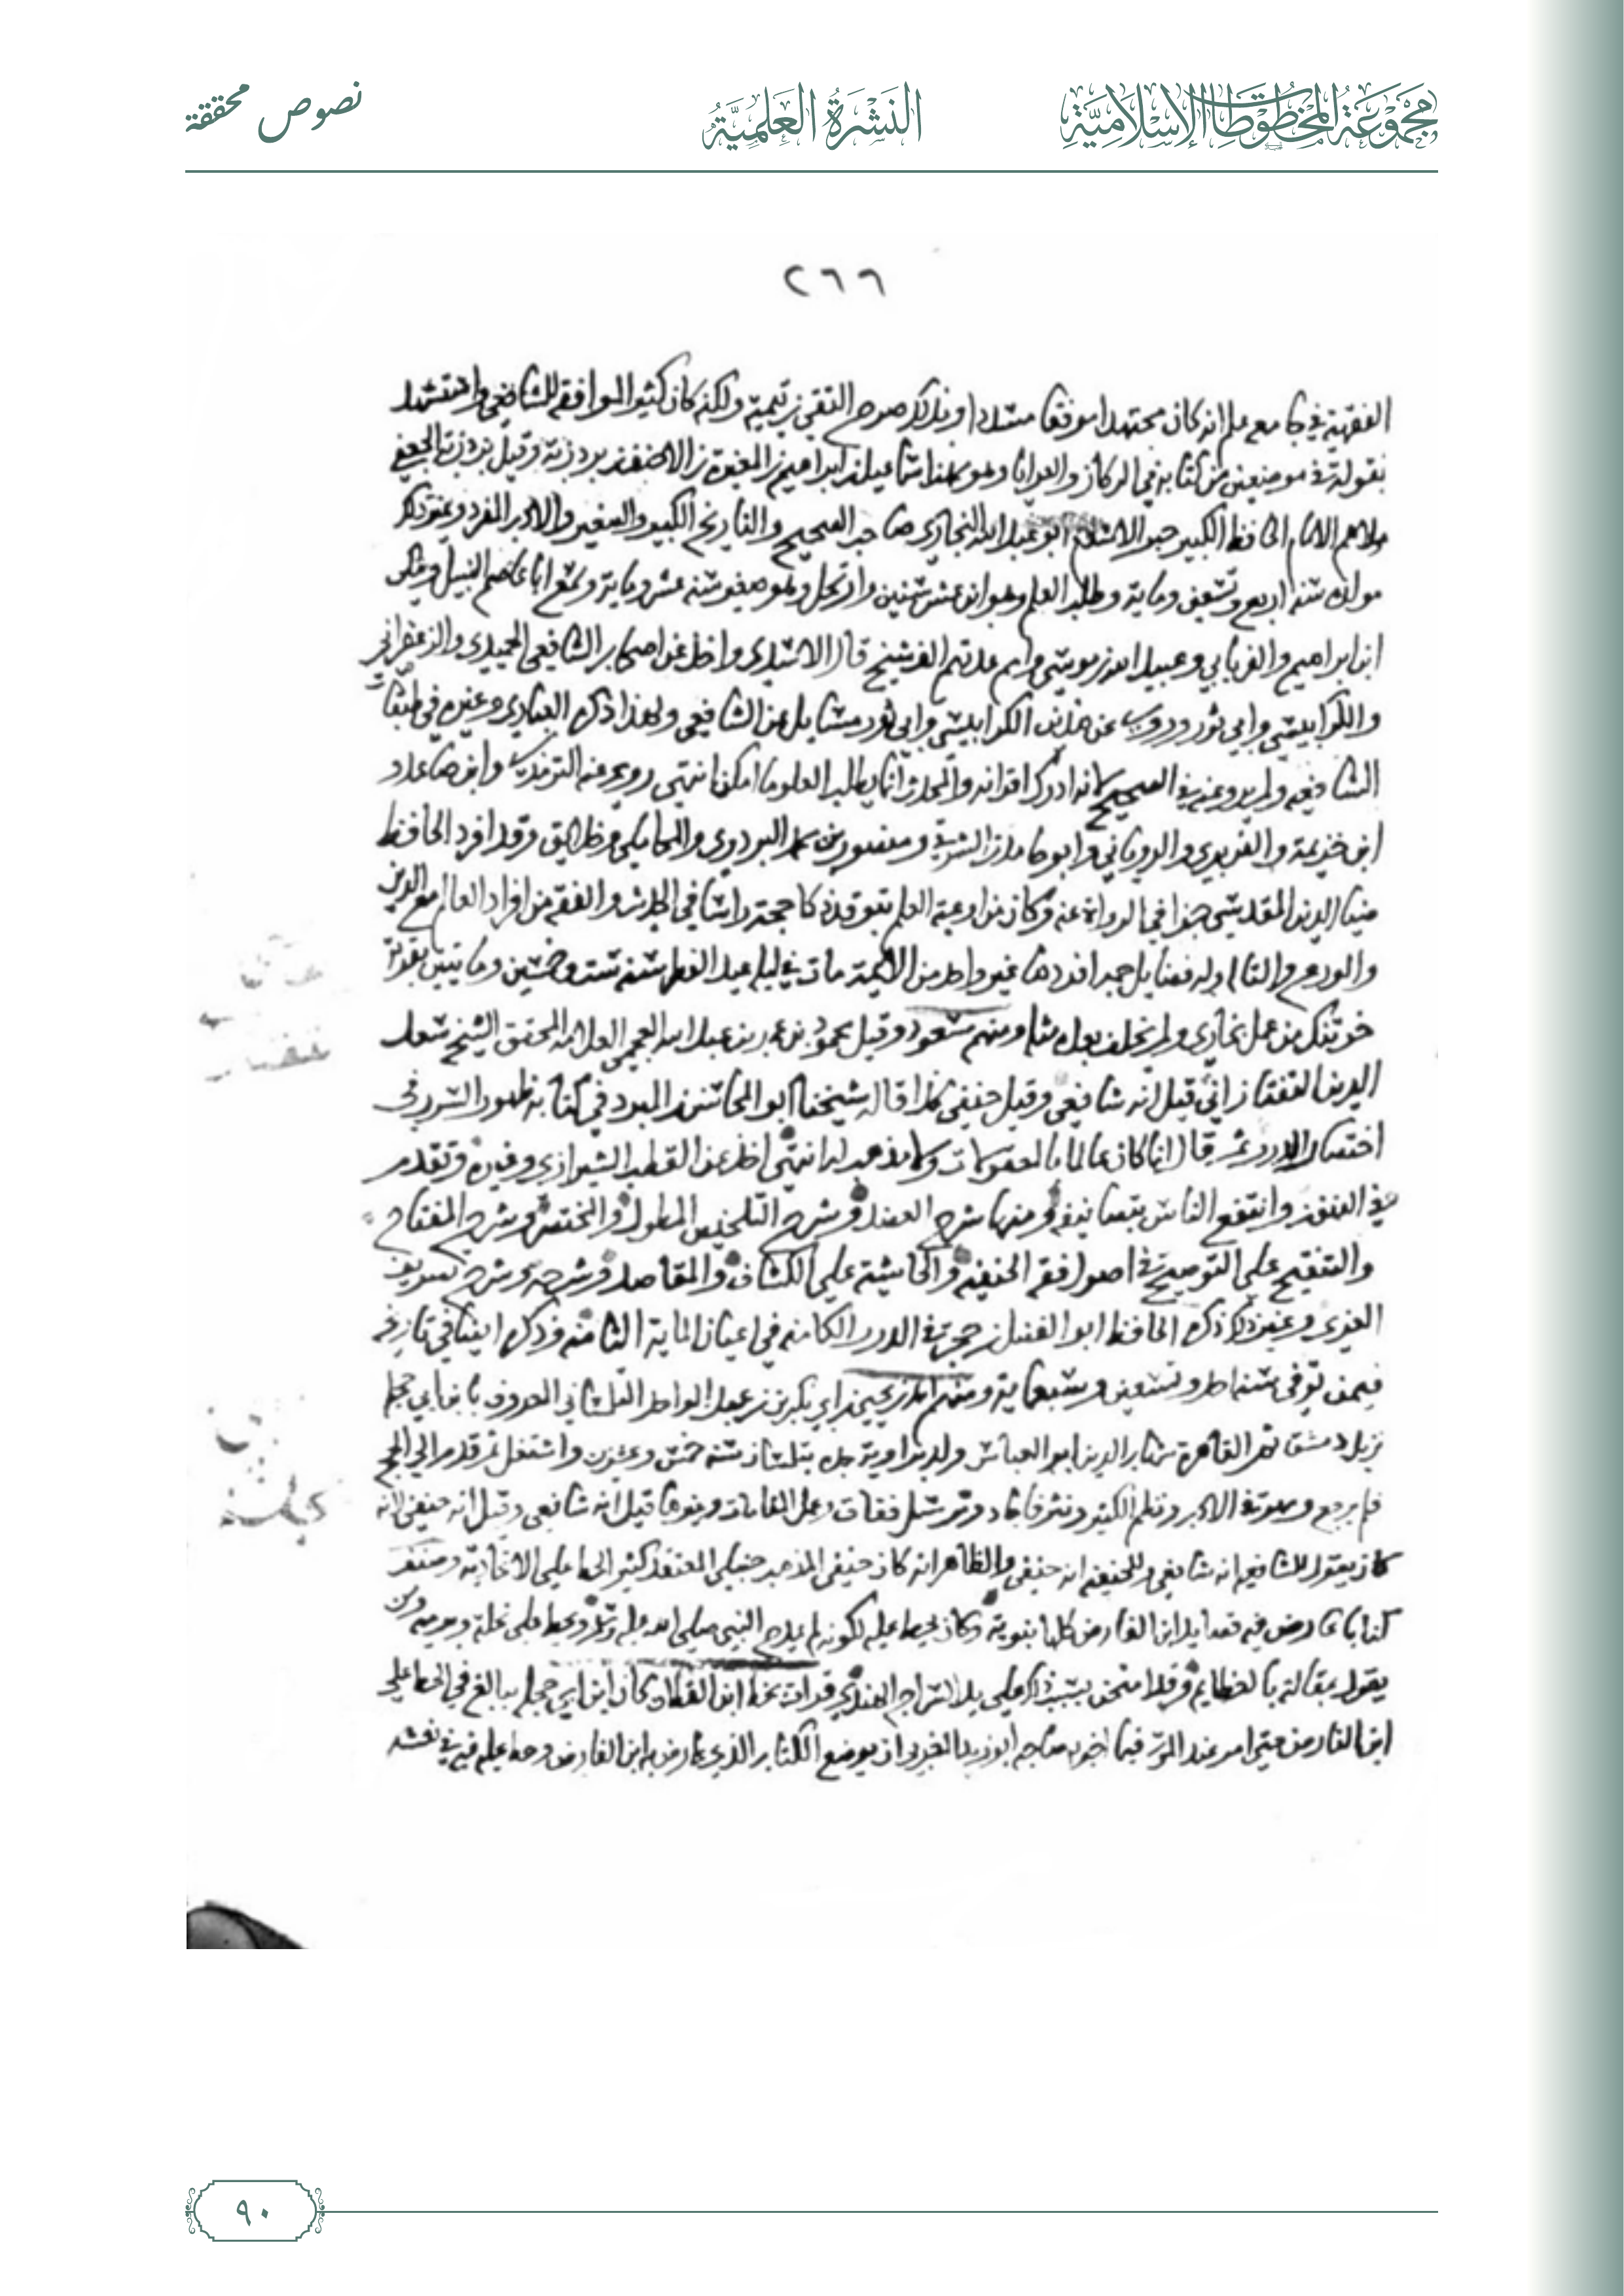 مجموعة المخطوطات الإسلامية
النشرة العلمية
نصوص محققة
٢٦٦
الفقهية في جامعه علم انه كان مجتهدا موفقا مسددا وبذلك صرح التقي بن تيمية ولكنه كان كثير الموافقة للشافعي واستشهد
بقوله في موضعين من كتابه في الركاز والعرايا وهو محمد بن اسماعيل بن ابراهيم بن المغيرة بن الاحنف بردزبة وقيل بذدزبة الجعفي
مولاهم الامام الحافظ الكبير حبر الاسلام ابو عبد الله البخاري صاحب الصحيح والتاريخ الكبير والصغير والادب المفرد وغير ذلك
مولده سنة اربع وتسعين وماية وطلب العلم وهو ابن عشر سنين وارتحل وهو صغير سنة عشر وماية وسمع ابا عاصم النبيل ومكي
ابن ابراهيم والفريابي وعبيد الله بن موسى وامم عدتهم الف شيخ قال الاسدي واخذ عن اصحاب الشافعي الحميدي والزعفراني
والكرابيسي وابي ثور وروى عن الكرابيسي وابي ثور مسايل عن الشافعي ولهذا ذكره العبادي وغيره في طبقات
الشافعية ولم يرو عنه في الصحيح لانه ادرك اقرانه والمحدث انما يطلب العلو ما امكن انتهى روى عنه الترمذي وابن صاعد
ابن خزيمة والفربري والروياني وابو حامد بن الشرقي ومنصور بن محمد البزدوي والمحاملي وخلايق وقد افرد الحافظ
ضيا الدين المقدسي جزا في الرواة عنه وكان من اوعية العلم يتوقد ذكا حجة راسا في الحديث والفقه من افراد العالم مع الدين
والورع والتاله وله فضايل جمة افردها غير واحد من الايمة مات في ليلة عيد الفطر سنة ست وخمسين ومايتين بقرية
خرتنك من عمل بخاري ولم يخلف بعده مثله ومنهم مسعود وقيل محمود بن عمر بن عبد الله العجمي العلامة المحقق الشيخ سعد
الدين التفتازاني قيل انه شافعي وقيل حنفي كذا قاله شيخنا ابو المحاسن بن المبرد في كتابه ظهور السرر في
اختصار الدرر ثم قال انما كان عالما بالمعقولات ولا مذهب له انتهى اخذ عن القطب الشيرازي وغيره وتقدم
في الفنون وانتفع الناس بتصانيفه ومنها شرح العضد وشرح التلخيص المطول والمختصر وشرح المفتاح
والتنقيح على التوضيح في اصول فقه الحنفية والحاشية على الكشاف والمقاصد وشرحه وشرح تصريف
العزي وغير ذلك ذكره الحافظ ابو الفضل بن حجر في الدرر الكامنة في اعيان الماية الثامنة وذكره ايضا في تاريخه
فيمن توفي سنة احد وتسعين وسبعماية ومنهم احمد بن يحيى بن ابي بكر بن عبد الواحد التلمساني المعروف بابن ابي حجلة
نزيل دمشق ثم القاهرة شهاب الدين ابو العباس ولد بزاوية جده بتلمسان سنة خمس وعشرين واشتغل ثم قدم الى الحج
فلم يرجع ومهر في الادب ونظم الكثير ونثر فاجاد وترسل ففاق وعمل المقامات وغيرها قيل انه شافعي وقيل انه حنفي لانه
كان يقول للشافعية انه شافعي وللحنفية انه حنفي والظاهر انه كان حنفي المذهب حنبلي المعتقد كثير الحط على الاتحادية وصنف
كتابا عارض فيه قصايد ابن الفارض كلها نبوية وكان يحط عليه لكونه لم يمدح النبي صلى الله عليه وسلم ويحط على نحلته ومن
يقول بمقالته بالعظايم وقد امتحن بسبب ذلك على يد السراج الهندي قرات بخط ابن القطان كان ابن ابي حجلة يبالغ في الحط على
ابن الفارض حتى امر عند الموت فيما اخبر به صاحبه ابو زيد المغربي ان يوضع الكتاب الذي عارض به ابن الفارض وحط عليه فيه في نعشه
٩٠